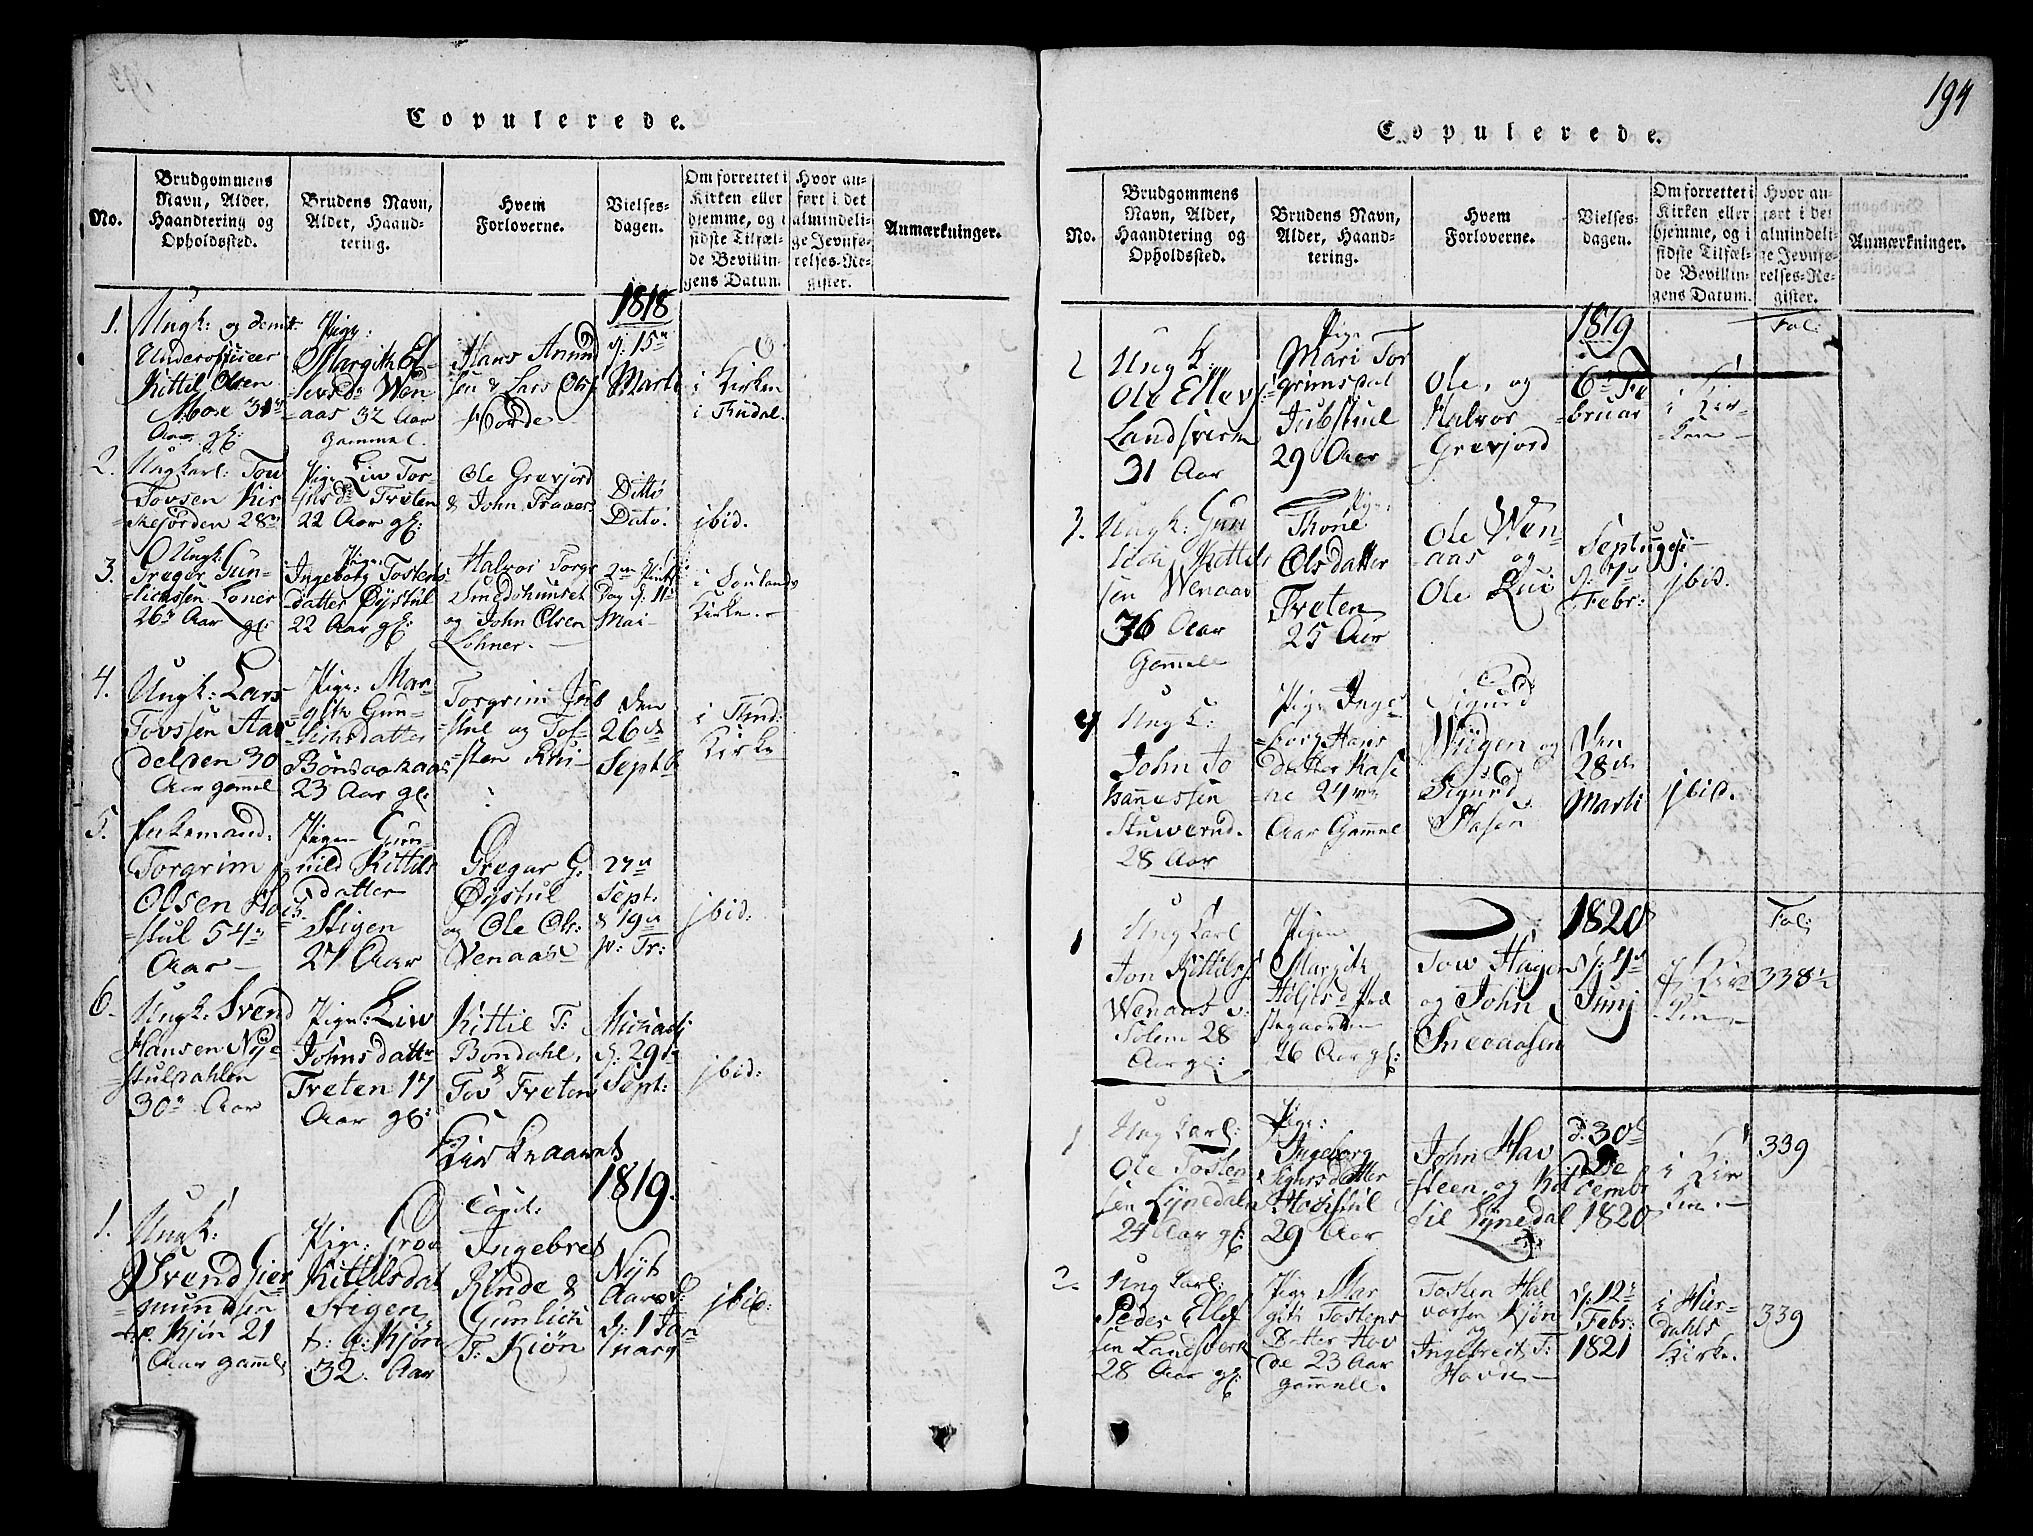 194
Copulerede.
No.
Brudgommens
Navn, Alder,
Haandtering og
Opholdssted.
Brudens Navn,
Alder, Haand-
tering.
Hvem
Forloverne.
Vielses-
dagen.
Om forrettet i
Kirken eller
hjemme, og i
sidste Tilfæl-
de Bevillin-
gens Datum.
Hvor an-
ført i det
almindeli-
ge Jevnfø-
relses-Re-
gister.
Anmærkninger.
1818
1.
Ungk: og demitt
Underofficeer
Kittil Olsen
Mose
Aar gl:
Pige:
Margith El-
levsd: Wen-
aas 32 Aar
Gammel.
Hans Amund
sen & Lars Ols:
Horde
d: 15de
Marti
i Kirken
2.
Ungkarl: Tow
Tovsen Kir
kejorden 28
Pige Liw Tor-
Treten
22 Aar gl:
Ole Grevjord
& John
Ditto
Dato.
ibid.
3.
Ungk:
Gregar Gun-
Loner
26 Aar gl:
Pige
Ingeborg Tostens
datter Øystul
22 Aar gl:
Halvor Torgr
og John Olsen
Lohner.
Mai
i
Kirke.
4.
Ungk: Lars
Tovssen
30
Aar gammel
Pige: Mar-
gith Gun-
datter
23 Aar gl:
Torgrim Jub
stul og Tos-
sten
Den
26de
Septb
i
Kirke
5.
Enkemand:
Torgrim
Olsen
stul 54
Aar
Pigen Gun-
nild Kittils
datter
Stigen
27 Aar
Gregar G.
Øystul
og Ole Ols:
Wenaas
27de
Sept:
& 19de
p: Tr:
ibid:
6.
Ungk: Svend
Hansen Nye
stuldahlen
30 Aar
Pige: Liw
Johnsdatter
Treten 17
Aar gl:
Kittil T:
Bondahl,
&
Tov Treten
Michaeli
d: 29de
Sept:
ibid:
Kirkeaaret
1819.
1.
Ungk:
Svend Gier
mundsen
Kjøn 21
Aar gammel
Pige: Groe
Kittilsdat
Stigen
Kjøn
32. Aar
Ingebret
Rinde &
Gunlich
T: Kiøn
Nyt
Aars
d: 1 Jan
nary
ibid:
Copulerede.
No.
Brudgommens
Navn, Alder,
Haandtering og
Opholdssted.
Brudens Navn,
Alder, Haand-
tering.
Hvem
Forloverne.
Vielses-
dagen.
Om forrettet i
Kirken eller
hjemme, og i
sidste Tilfæl-
de Bevillin-
gens Datum.
Hvor an-
ført i det
almindeli-
ge Jevnfø-
relses-Re-
gister.
Anmærkninger.
1819
Fol:
2
Ung K:
Ole Ellevs:
Landsverk
31 Aar
Pige
Mari Tor
grimsdat
Jubstul
29 Aar
Ole, og
Halvor
Grevjord
6te Fe
bruar
i Kir-
ken
3.
Ungk: Gun
Kittil
sen Wenaas
36 Aar
Gamle
Pige:
Thone
Olsdatter
Treten
25 Aar
Ole Wen-
aas og
Ole
Septuges:
d: 7de
Febr:
ibid.
4
Ung K:
John Jo
hannessen
28 Aar
Pige Inge
borg Hans
datter Hase
ne 24
Aar Gammel
Sigurd
og
Sigurd
Hasen
Den
28de
Marti
ibid.
1820
Fol:
1
Ung Karl
Jon Kittils
Wenaas
28
Aar gl:
Pigen
Margith
26 Aar gl:
Tow Hagen
og John
Sneeaasen
d: 4de
Junj
i Kir
ken
338
1
Ung Karl:
Ole Tosten
sen Lynedalen
24 Aar gl:
Pige:
Ingeborg
Sigursdatter
29 Aar
John Hav
steen, og Kit
til Lynedal
d: 30te
De
cembr
1820
i Kir
ken.
339
2.
Ung Karl:
Peder Ellef
sen Landsverk
28 Aar gl:
Pige Mar
git Tostens
Datter Hov
de 23 Aar
gammel.
Tosten Hal
vorsen Kjøn
og
Ingebreit T:
Hovde
d: 12te
Febr:
1821
i Hier-
dahls
Kirke.
339